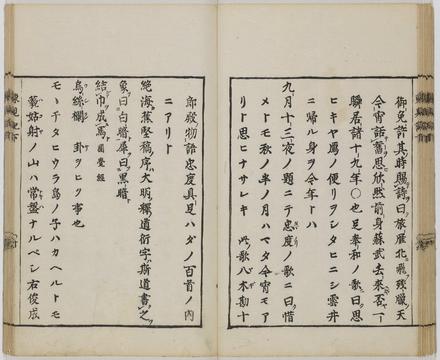 御免許其時賜詩曰旅雁北飛残臘天
今宵話舊思欣然前身蘇武去來否一
瞬居諸十九年〇也足奉和ノ歌曰思
ヒキヤ鳫ノ便リヲシタヒニシ雲井
ニ帰ル身ヲ今年トハ
九月十三夜ノ題ニテ忠度ノ歌ニ曰惜
メトモ秋ノ半ノ月ハマタ今宵モア
リト思ヒナサレキ 此歌八木勘十
郎殿物語忠度真足ハダノ百首ノ内
ニアリト
絶海蕉堅稿序大明釋道衍字斯道書之
象曰白暗犀曰黒暗
結巾成馬 圓覺經
烏絲欄 卦ヲヒク事也
モヽチタヒウラ島ノ子ハカヘルトモ
藐姑射ノ山ハ常盤ナルベシ右俊成